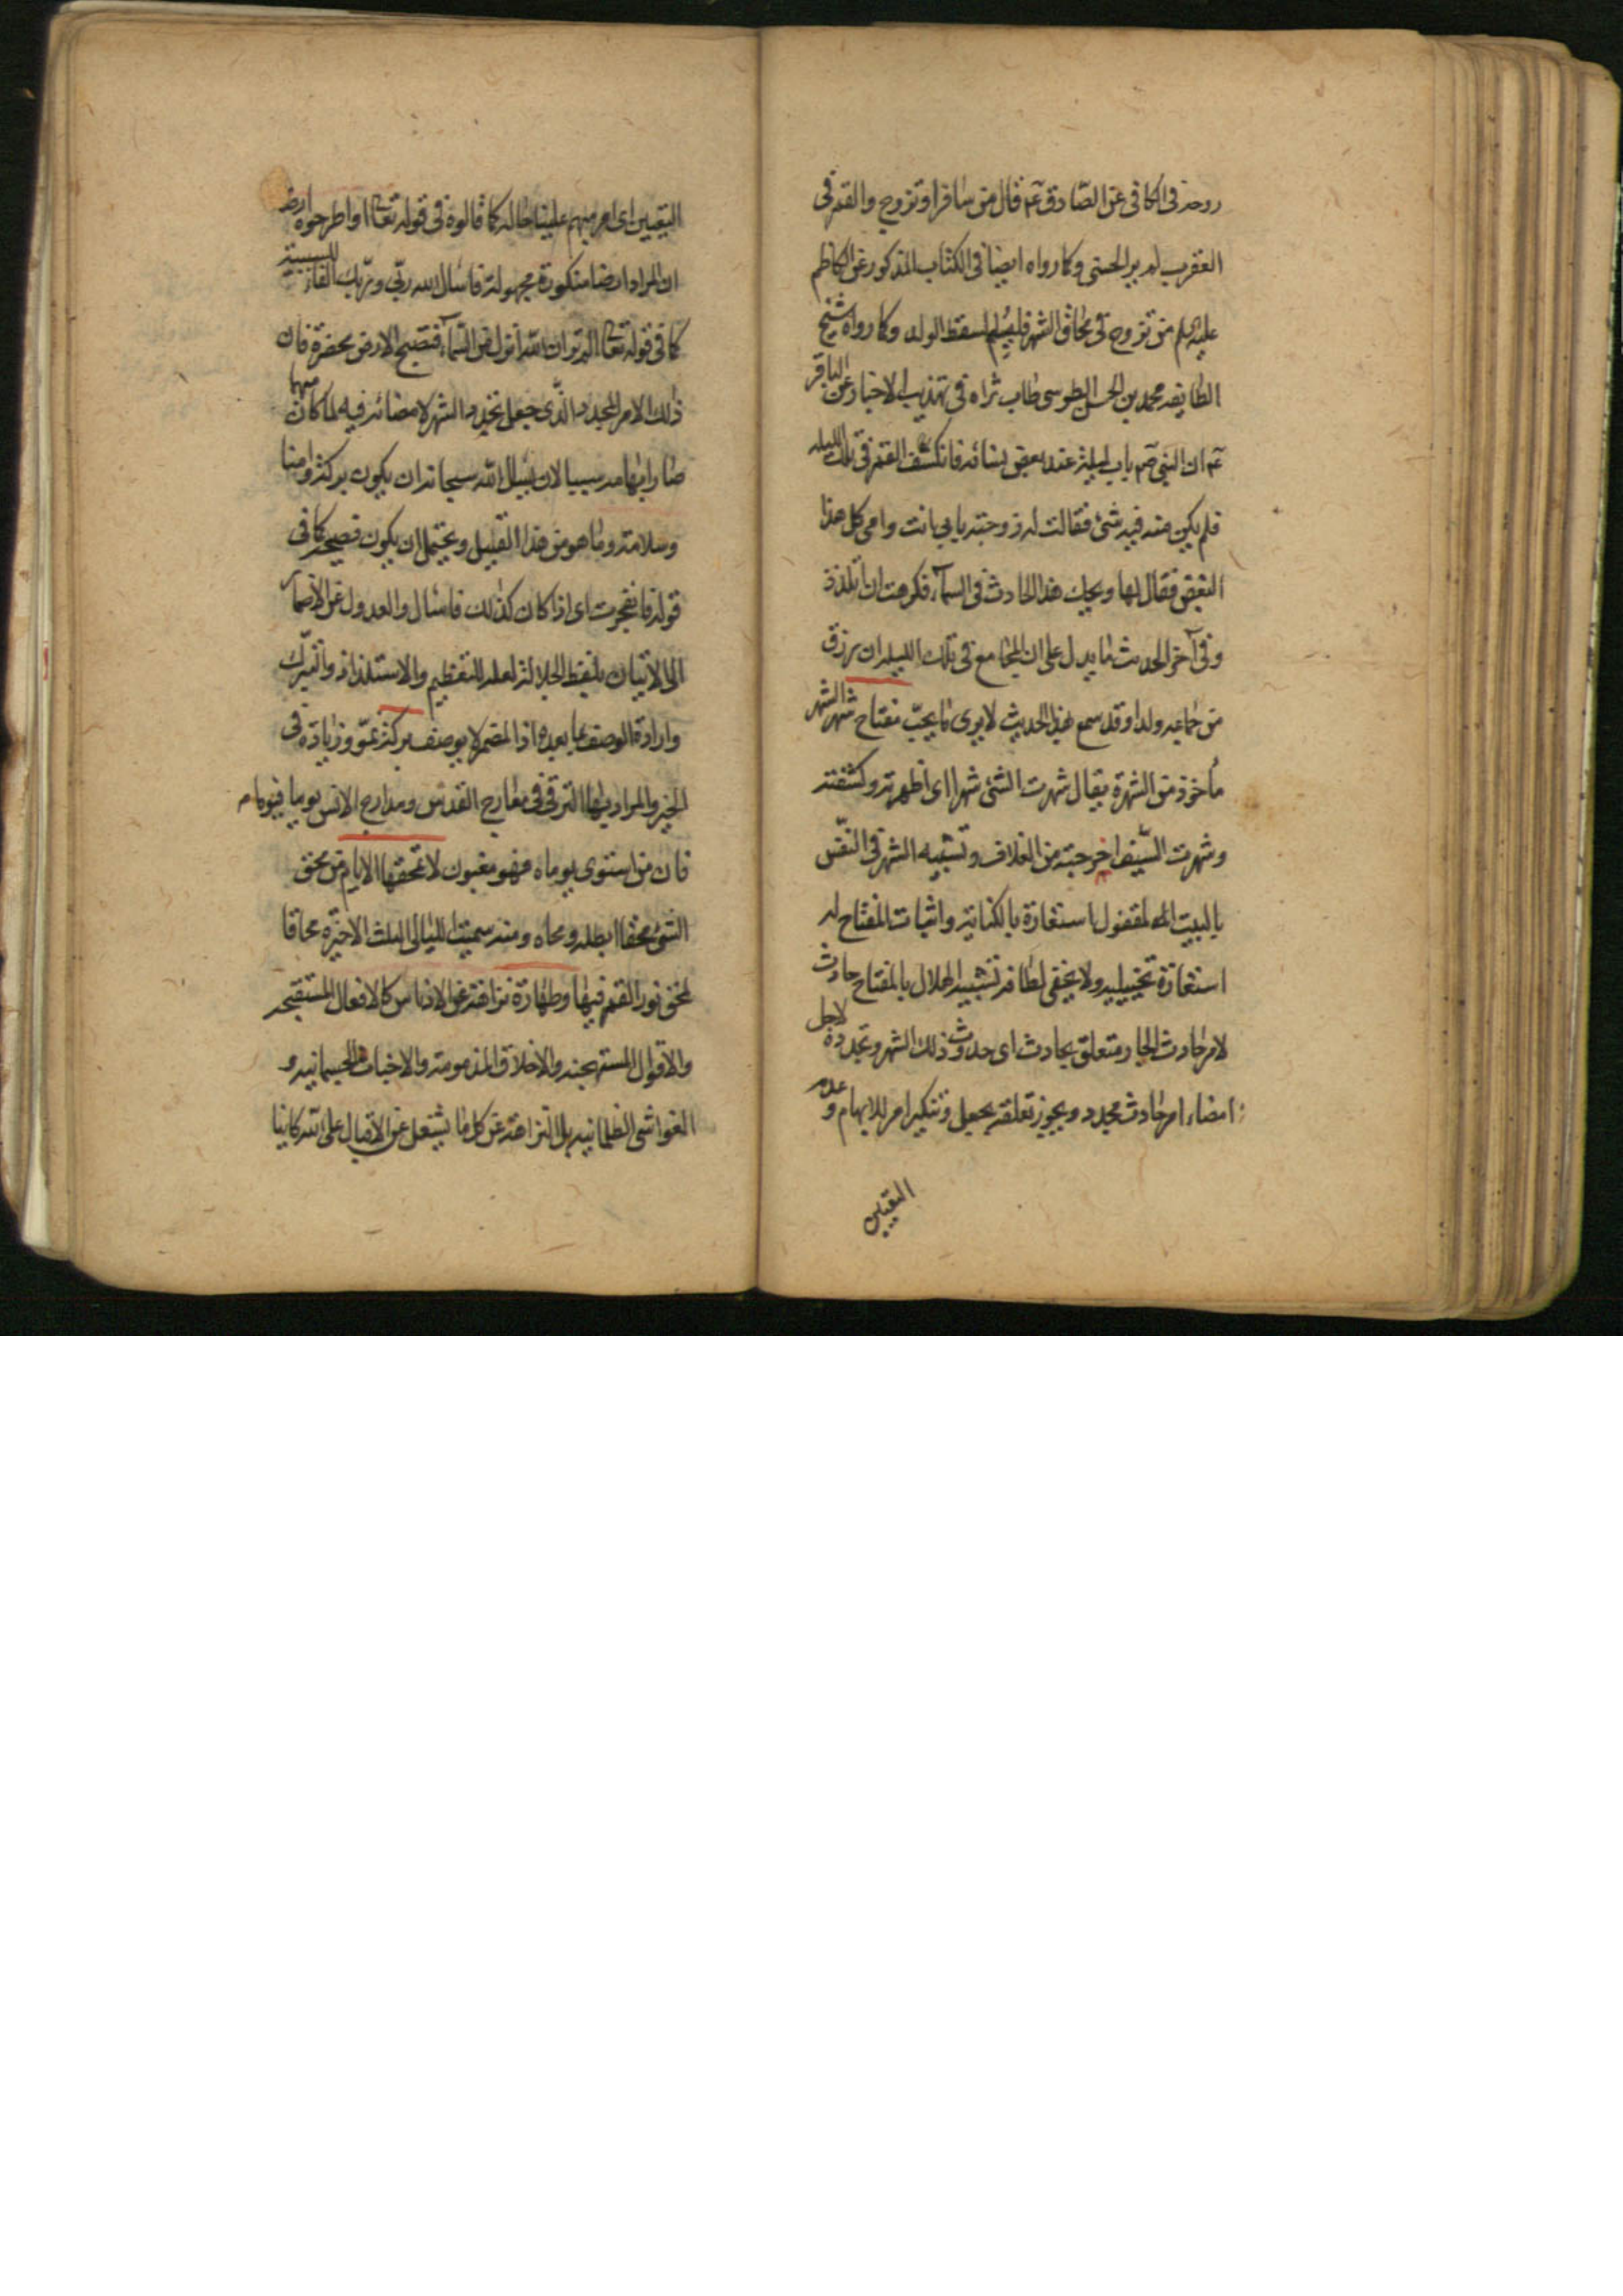 روحه فى الكافى عن الصّادق عم قال من سافر او تزوج والقمر فى
العقرب لم ير الحسنى وكما رواه ايضا فى الكتاب المذكور عن الكاظم
عليه السلم من تزوج فى محاق الشهر فليسلم لسقط الولد وكما رواه شيخ
الطايفه محمد بن الحسن الطوسى طاب ثراه فى تهذيب الاخبار عن الباقر
عم ان النبى صم بات ليلة عند بعض نسائه فانكسف القمر فى تلك الليله
فلم يكن منه فيه شئ فقالت له زوجته يا بى انت وامى كل هذا
البغض فقال لها ويحك هذا الحادث فى السمآء فكرهت ان اتلذذ
وفى آخر الحديث ما يدل على ان المجامع فى تلك الليله ان رزق
من جماعه ولدا وقد سمع بهذا الحديث لا يرى ما يحبّ مفتاح شهر الشهر
مأخوذ من الشهرة يقال شهرت الشئ شهرا اى اظهرته وكشفته
وشهرت السّيف اخرجته من الغلاف وتشبيه الشهر فى النفس
بالبيت المقفول استعارة بالكناية واثبات المفتاح له
استعارة تخييليه ولا يخفى لطافه تشبيه الهلال بالمفتاح حادث
لامر حادث الجار متعلق بحادث اى حدوث ذلك الشهر وتجدده لاجل
امضاء امر حادث مجدد ويجوز تعلقه بجعل وتنكير امر للابهام وعدم
التعيين
التعيين اى امر مبهم علينا حاله كما قالوه فى قوله تعالى او اطرحوه ارضا
ان المراد ارضا منكورة مجهولة فاسأل الله ربّى وربّك الفاء للسببية
كما فى قوله تعالى الم تر ان الله انزل من السّمآء فتصبح الارض مخضرة فان
ذلك الامر المجدد الّذى جعل تجدد الشهر لامضائه فيه لما كان مبهما
صار ابهامه سببا لان يسأل الله سبحانه ان يكون بركة وامنا
وسلامة وما هو من هذا القبيل ويحتمل ان يكون فصيحة كما فى
قوله فانفجرت اى اذا كان كذلك فاسأل والعدول عن الاضمار
الى الاتيان بلفظ الجلالة لعله للتعظيم والاستلذاذ والتبرّك
وارادة الوصف بما بعده اذ المضمر لا يوصف بركة نموّ وزيادة فى
الخير والمراد بها الترقى فى معارج القدس ومدارج الانس يوما فيوما
فان من استوى يوماه فهو مغبون لا تمحقها الايام من محق
الشئ محقا ابطله ومحاه ومنه سميت الليالى الثلث الاخيرة محاقا
لمحق نور القمر فيها وطهارة نزاهة عن الادناس كالافعال المستقبحه
والاقوال المستهجنه والاخلاق المذمومة والاخباث الجسمانيه و
الغواشى الظلمانيه بل النزاهة عن كل ما يشغل عن الاقبال على الله كاينا